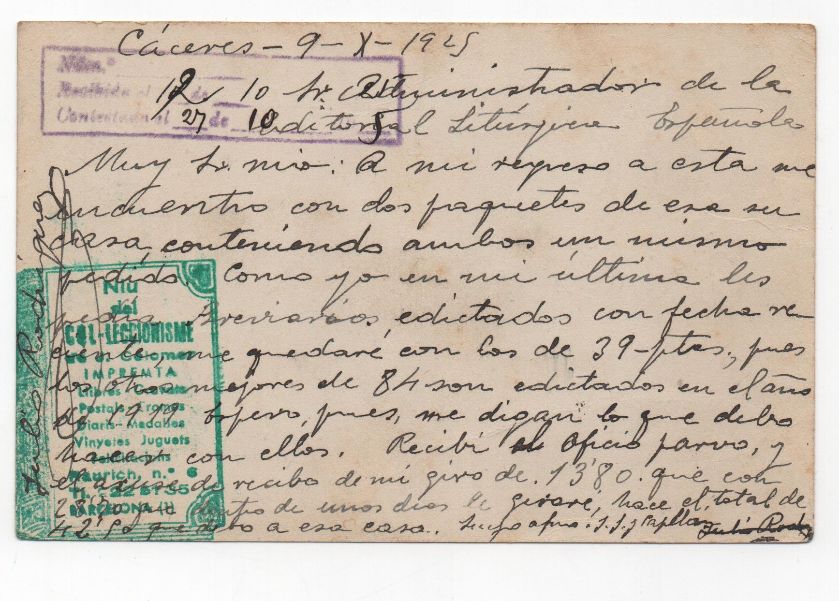 Cáceres - 9 - X - 1925
Núm.º
Recibida el 12 de 10
Contestada el 27 de 10
Sr. Administrador de la
Editorial Litúrgica Española
Muy Sr. mio: A mi regreso a esta me
encuentro con dos paquetes de esa su
casa conteniendo ambos un mismo
pedido. Como yo en mi última les
pedia Breviarios edictados con fecha re
ciente me quedaré con los de 39-ptas, pues
los otros mejores de 84 son edictados en el año
de 1919 Espero, pues, me digan lo que debo
hacer con ellos. Recibí Oficio parvo, y
el acuse de recibo de mi giro de 1380 que con
que dentro de unos dias le giraré, hace el total de
que debo a esa casa.
Julio Rodríguez
Niu
del
COL·LECCIONISME
IMPREMTA
Postals Cromos
Diaris-Medalles
Vinyetes Juguets
nº 6
BARCELONA